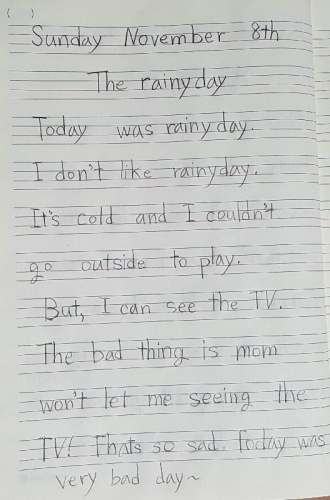 ( )
Sunday November 8th
The rainyday
Today was rainyday.
I don't like rainyday.
It's cold and I couldn't
go outside to play.
But, I can see the TV.
The bad thing is mom
won't let me seeing the
TV! Thats so sad. Today was
very bad day~